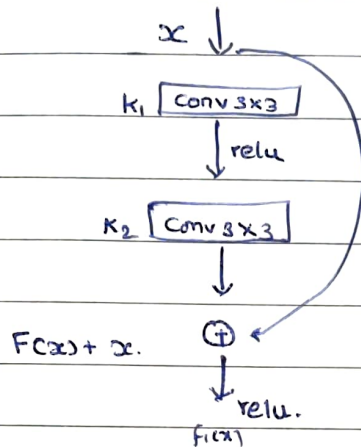 x
K₁ Conv 3x3
relu
K₂ Conv 3x3
F(x) + x. +
relu.
f₁(x)